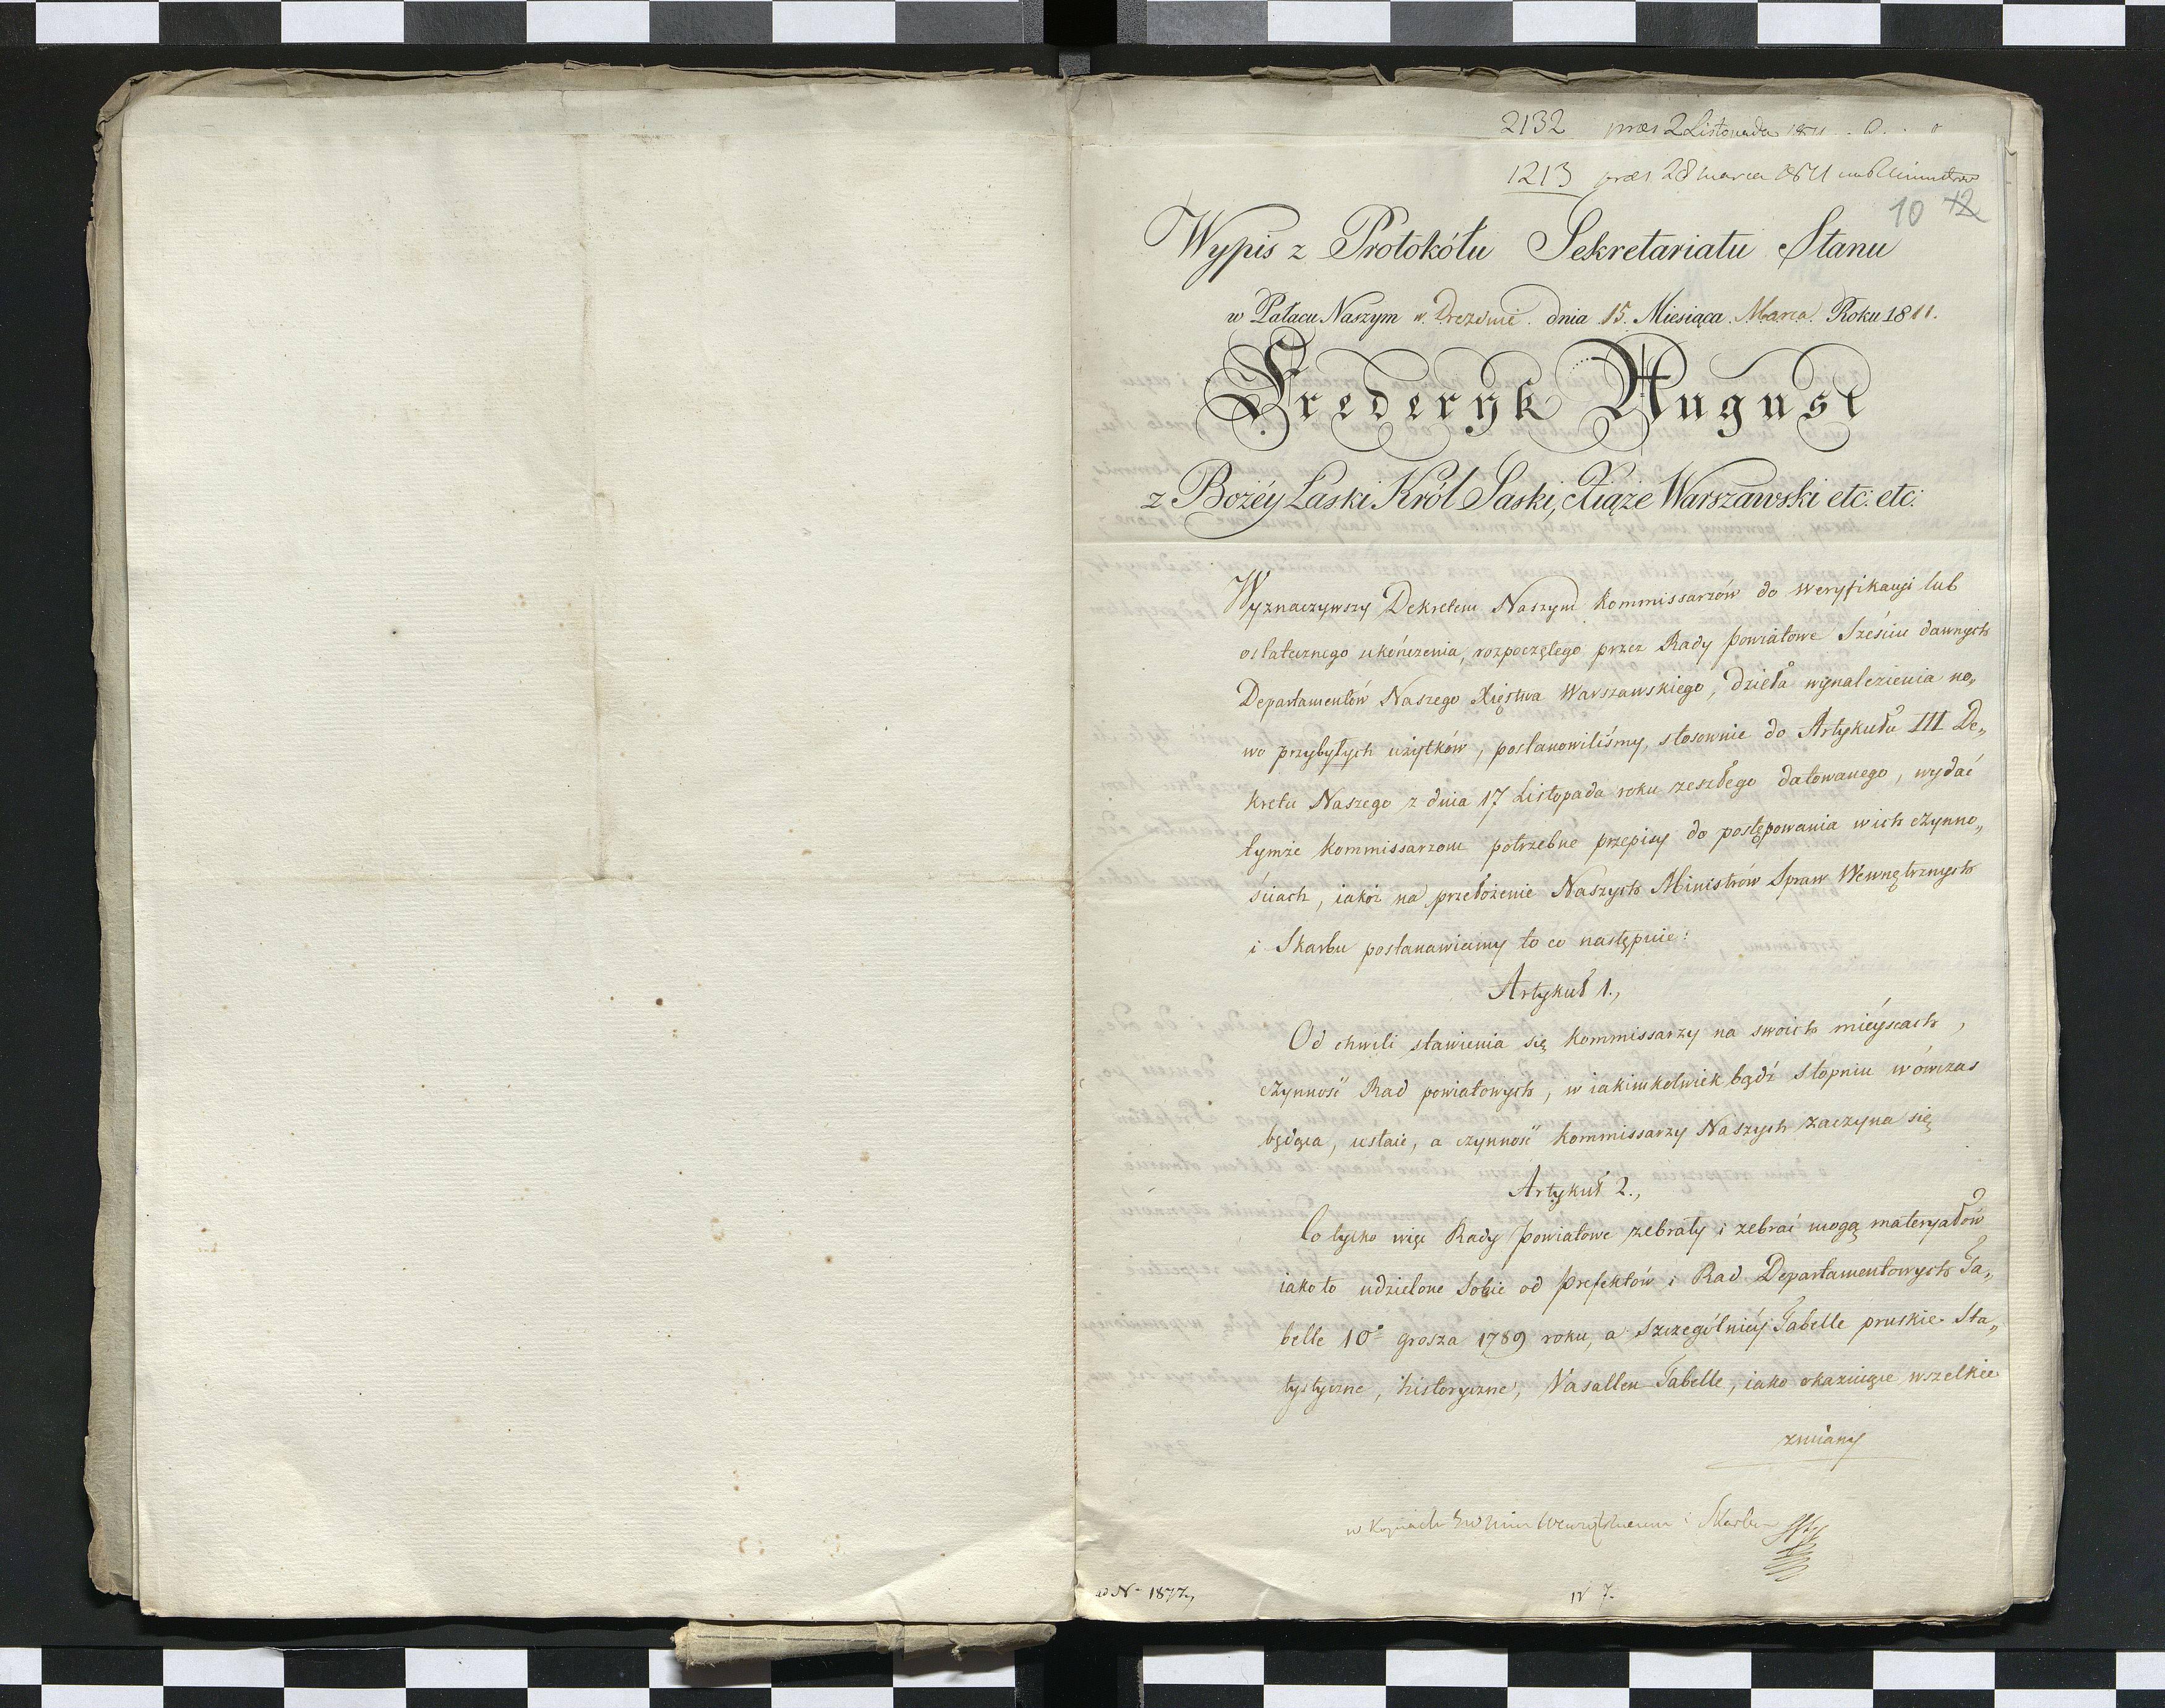 2132 præs 2 Listopada 1811
1213 præs 28 marca 1811
10 12
Wypis z Protokółu Sekretariatu Stanu
w Pałacu Naszym w Dreznie dnia 15. Miesiąca Marca Roku 1811.
Frederyk August
z Bożéy Łaski Król Saski, Xiąże Warszawski etc: etc:
Wyznaczywszy Dekretem Naszym Kommissarzów do weryfikacyi lub
ostatecznego ukończenia, rozpoczętego przez Rady powiatowe Sześciu dawnych
Departamentów Naszego Xięstwa Warszawskiego, dzieła wynalezienia no„
wo przybyłych użytków, postanowiliśmy, stosownie do Artykułu III De„
kretu Naszego z dnia 17 Listopada roku zeszłego datowanego, wydać
tymże Kommissarzom potrzebne przepisy do postępowania w ich czynno„
ściach, iakoż na przełożenie Naszych Ministrów Spraw Wewnętrznych
i Skarbu postanawiamy to co następuie:
Artykuł 1.,
Od chwili stawienia się Kommissarzy na swoich mieyscach,
czynność Rad powiatowych, w iakimkolwiek bądź stopniu wówczas
będąca, ustaie, a czynność Kommissarzy Naszych zaczyna się
Artykuł 2.,
Co tylko więc Rady Powiatowe zebrały i zebrać mogą materyałów
iako to udzielone Sobie od Prefektów i Rad Departamentowych Ta„
belle 10º grosza 1789 roku, a Szczególniéy Tabelle pruskie Sta„
tystyczne, historyczne, Vasallen Tabelle, iako okazuiące wszelkie
zmiany
w Kopiach i Skarbu
ad Nº 1877,
N 7.